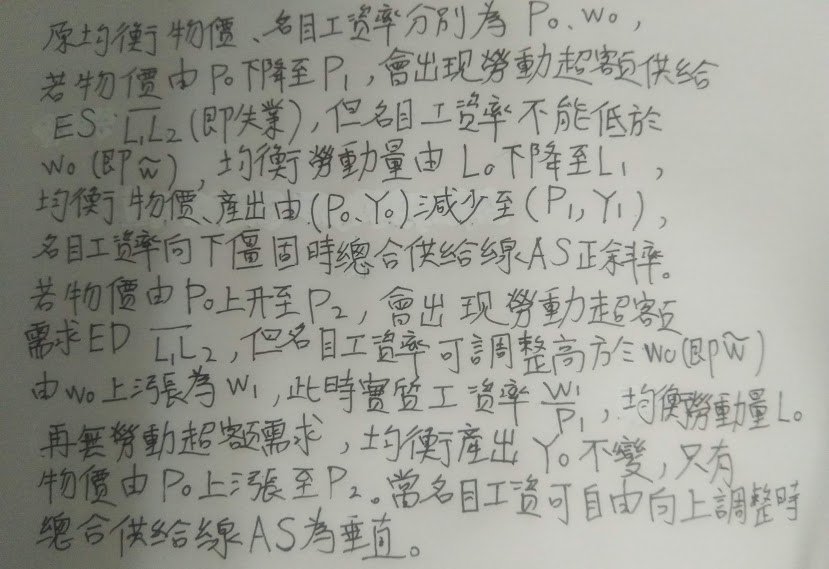 原均衡物價、名目工資率分別為P₀、W₀,
若物價由P₀下降至P₁,會出現勞動超額供給
ES L̅₁L̅₂(即失業),但名目工資率不能低於
W₀(即w̃),均衡勞動量由L₀下降至L₁,
均衡物價、產出由(P₀、Y₀)減少至(P₁,Y₁),
名目工資率向下僵固時總合供給線AS正斜率。
若物價由P₀上升至P₂,會出現勞動超額
需求ED L̅₁L̅₂,但名目工資率可調整高於W₀(即w̃)
由W₀上漲為W₁,此時實質工資率W₁/P₁,均衡勞動量L₀
再無勞動超額需求,均衡產出Y₀不變,只有
物價由P₀上漲至P₂。當名目工資可自由向上調整時
總合供給線AS為垂直。